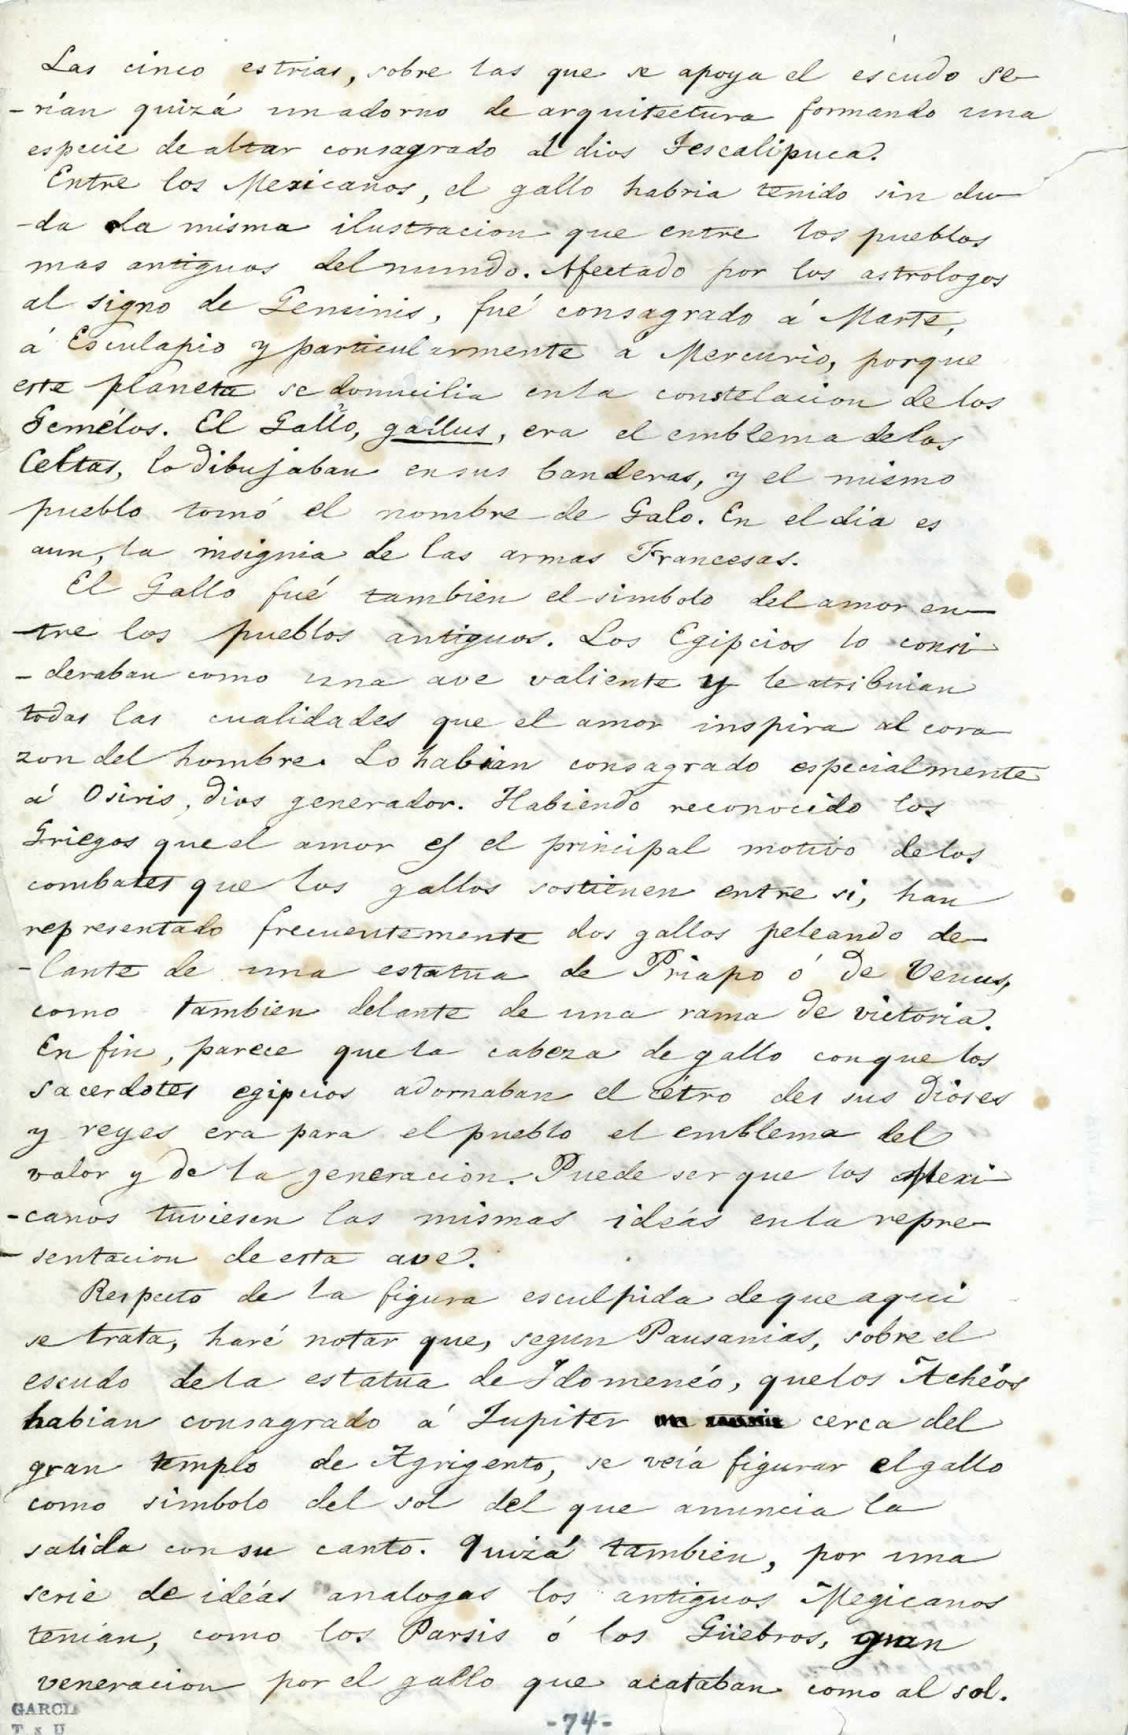 Las cinco estrias, sobre las que se apoya el escudo se-
-rían quizá un adorno de arquitectura formando una
especie de altar consagrado al dios Tescalipuca.
Entre los Mexicanos, el gallo habria tenido sin du-
-da la misma ilustracion que entre los pueblos
mas antiguos del mundo. Afectado por los astrologos
al signo de Geminis, fué consagrado á Marte,
á Esculapio y particularmente a Mercurio, porque
este planeta se domicilia en la constelacion de los
Gemélos. El Gallo, gallus, era el emblema de los
Celtas, lo dibujaban en sus banderas, y el mismo
pueblo tomó el nombre de Galo. En el dia es
aun, la insignia de las armas Francesas.
El Gallo fué tambien el simbolo del amor en-
-tre los pueblos antiguos. Los Egipcios lo consi-
-deraban como una ave valiente y le atribuian
todas las cualidades que el amor inspira al cora-
zon del hombre. Lo habian consagrado especialmente
á Osiris, dios generador. Habiendo reconocido los
Griegos que el amor es el principal motivo de los
combates que los gallos sostienen entre si, han
representado frecuentemente dos gallos peleando de-
-lante de una estatua de Priapo ó de Venus,
como tambien delante de una rama de victoria.
En fin, parece que la cabeza de gallo con que los
sacerdotes egipcios adornaban el cétro des sus dioses
y reyes era para el pueblo el emblema del
valor y de la generacion. Puede ser que los Mexi-
-canos tuviesen las mismas ideás en la repre-
-sentacion de esta ave.
Respecto de la figura esculpida de que aqui
se trata, haré notar que, segun Pausanias, sobre el
escudo de la estatua de Idomenéo, que los Achéos
habian consagrado á Jupiter cerca del
gran templo de Agrigento, se veiá figurar el gallo
como simbolo del sol del que anuncia la
salida con su canto. Quizá tambien, por una
serie de ideás analogas los antiguos Megicanos
tenian, como los Parsis ó los Güebros, gran
veneracion por el gallo que acataban como al sol.
GARCIA
-74-